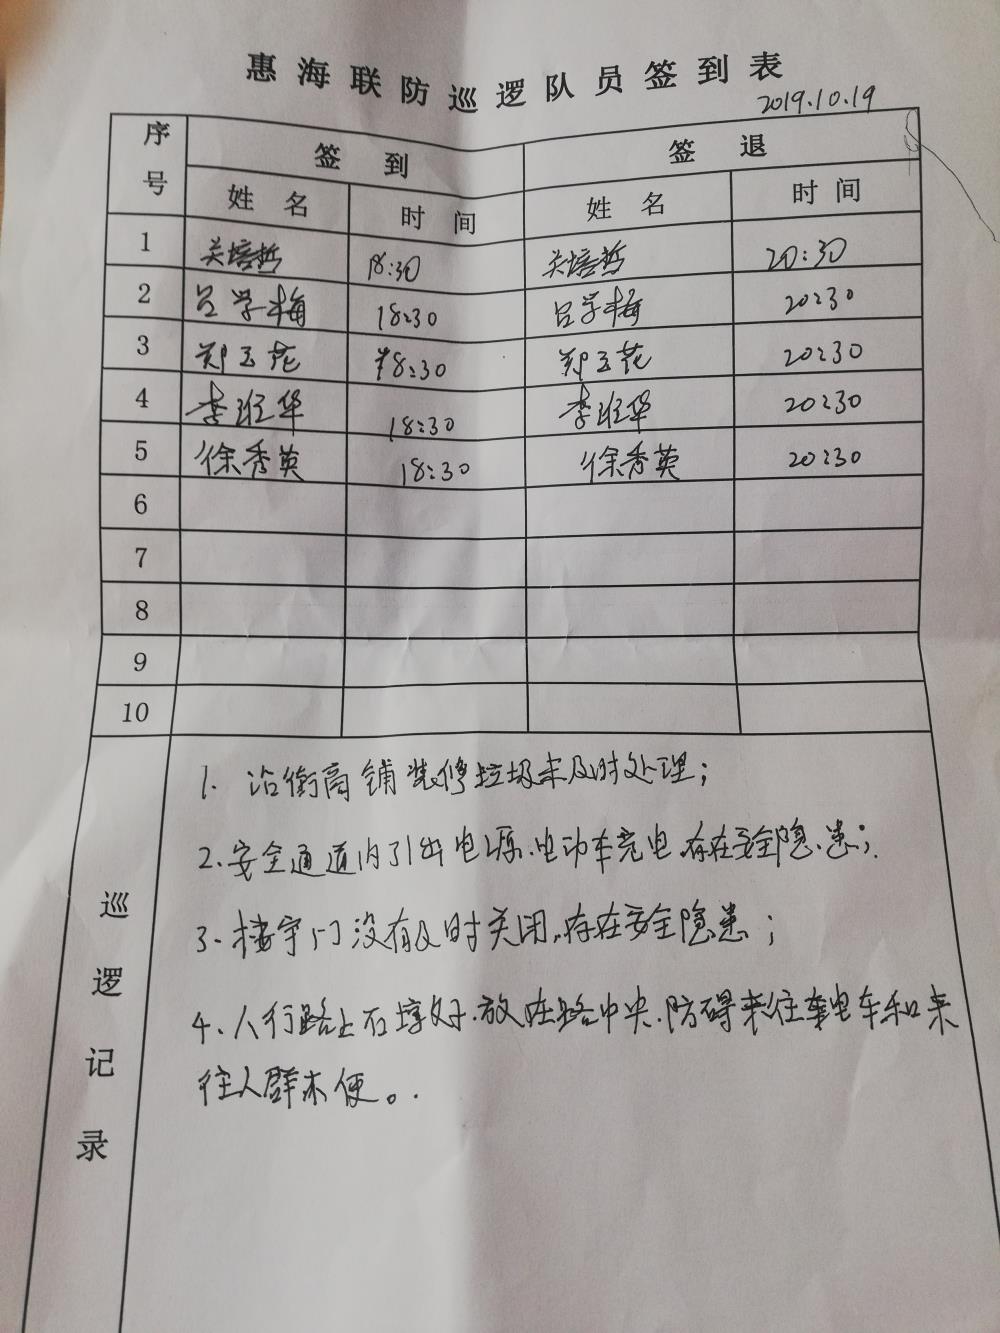 惠海联防巡逻队员签到表
2019.10.19
序号 签到 签退
姓名 时间 姓名 时间
1 关培哲 18:30 关培哲 20:30
2 吕学梅 18:30 吕学梅 20:30
3 郑玉花 18:30 郑玉花 20:30
4 李班华 18:30 李班华 20:30
5 徐秀英 18:30 徐秀英 20:30
6
7
8
9
10
巡逻记录
1. 沿街商铺装修垃圾未及时处理;
2. 安全通道内引出电源.电动车充电.存在安全隐患;
3. 楼宇门没有及时关闭.存在安全隐患;
4. 人行路上石墩.放在路中央.防碍来往电车和来
往人群不便。